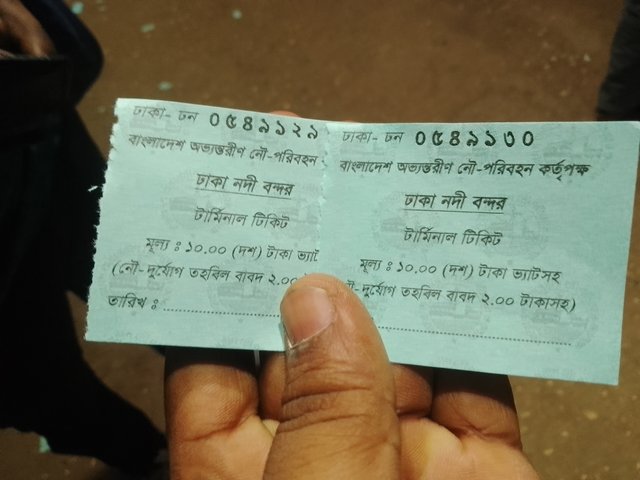 ঢাকা- ঢন ০৫৪৯১২৯
বাংলাদেশ অভ্যন্তরীণ নৌ-পরিবহন
ঢাকা নদী বন্দর
টার্মিনাল টিকিট
মূল্য : ১০.০০ (দশ) টাকা ভ্যাট
(নৌ-দুর্যোগ তহবিল বাবদ ২.০০
তারিখ :
ঢাকা- ঢন ০৫৪৯১৩০
বাংলাদেশ অভ্যন্তরীণ নৌ-পরিবহন কর্তৃপক্ষ
ঢাকা নদী বন্দর
টার্মিনাল টিকিট
মূল্য : ১০.০০ (দশ) টাকা ভ্যাটসহ
-দুর্যোগ তহবিল বাবদ ২.০০ টাকাসহ)